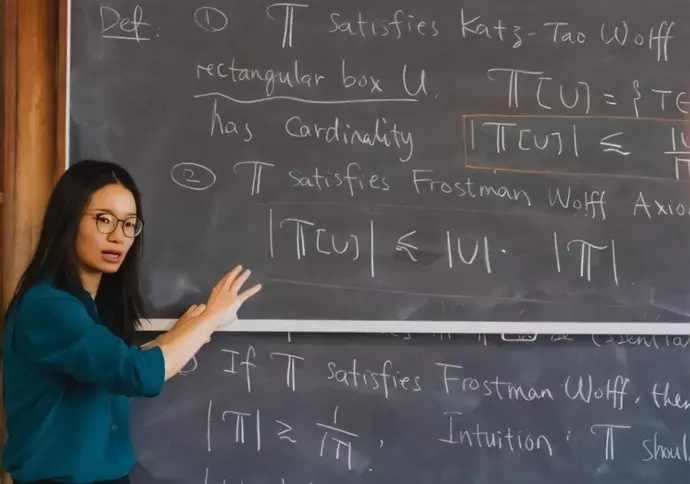 Def. ① 𝕋 satisfies Katz-Tao Wolff
rectangular box U, 𝕋[U] = { T ∈
has Cardinality |𝕋[U]| ≤
② 𝕋 satisfies Frostman Wolff Axio
|𝕋[U]| ≲ |U| · |𝕋|
If 𝕋 satisfies Frostman Wolff, then
|𝕋| ≳ 1/|T|, Intuition: 𝕋 shoul